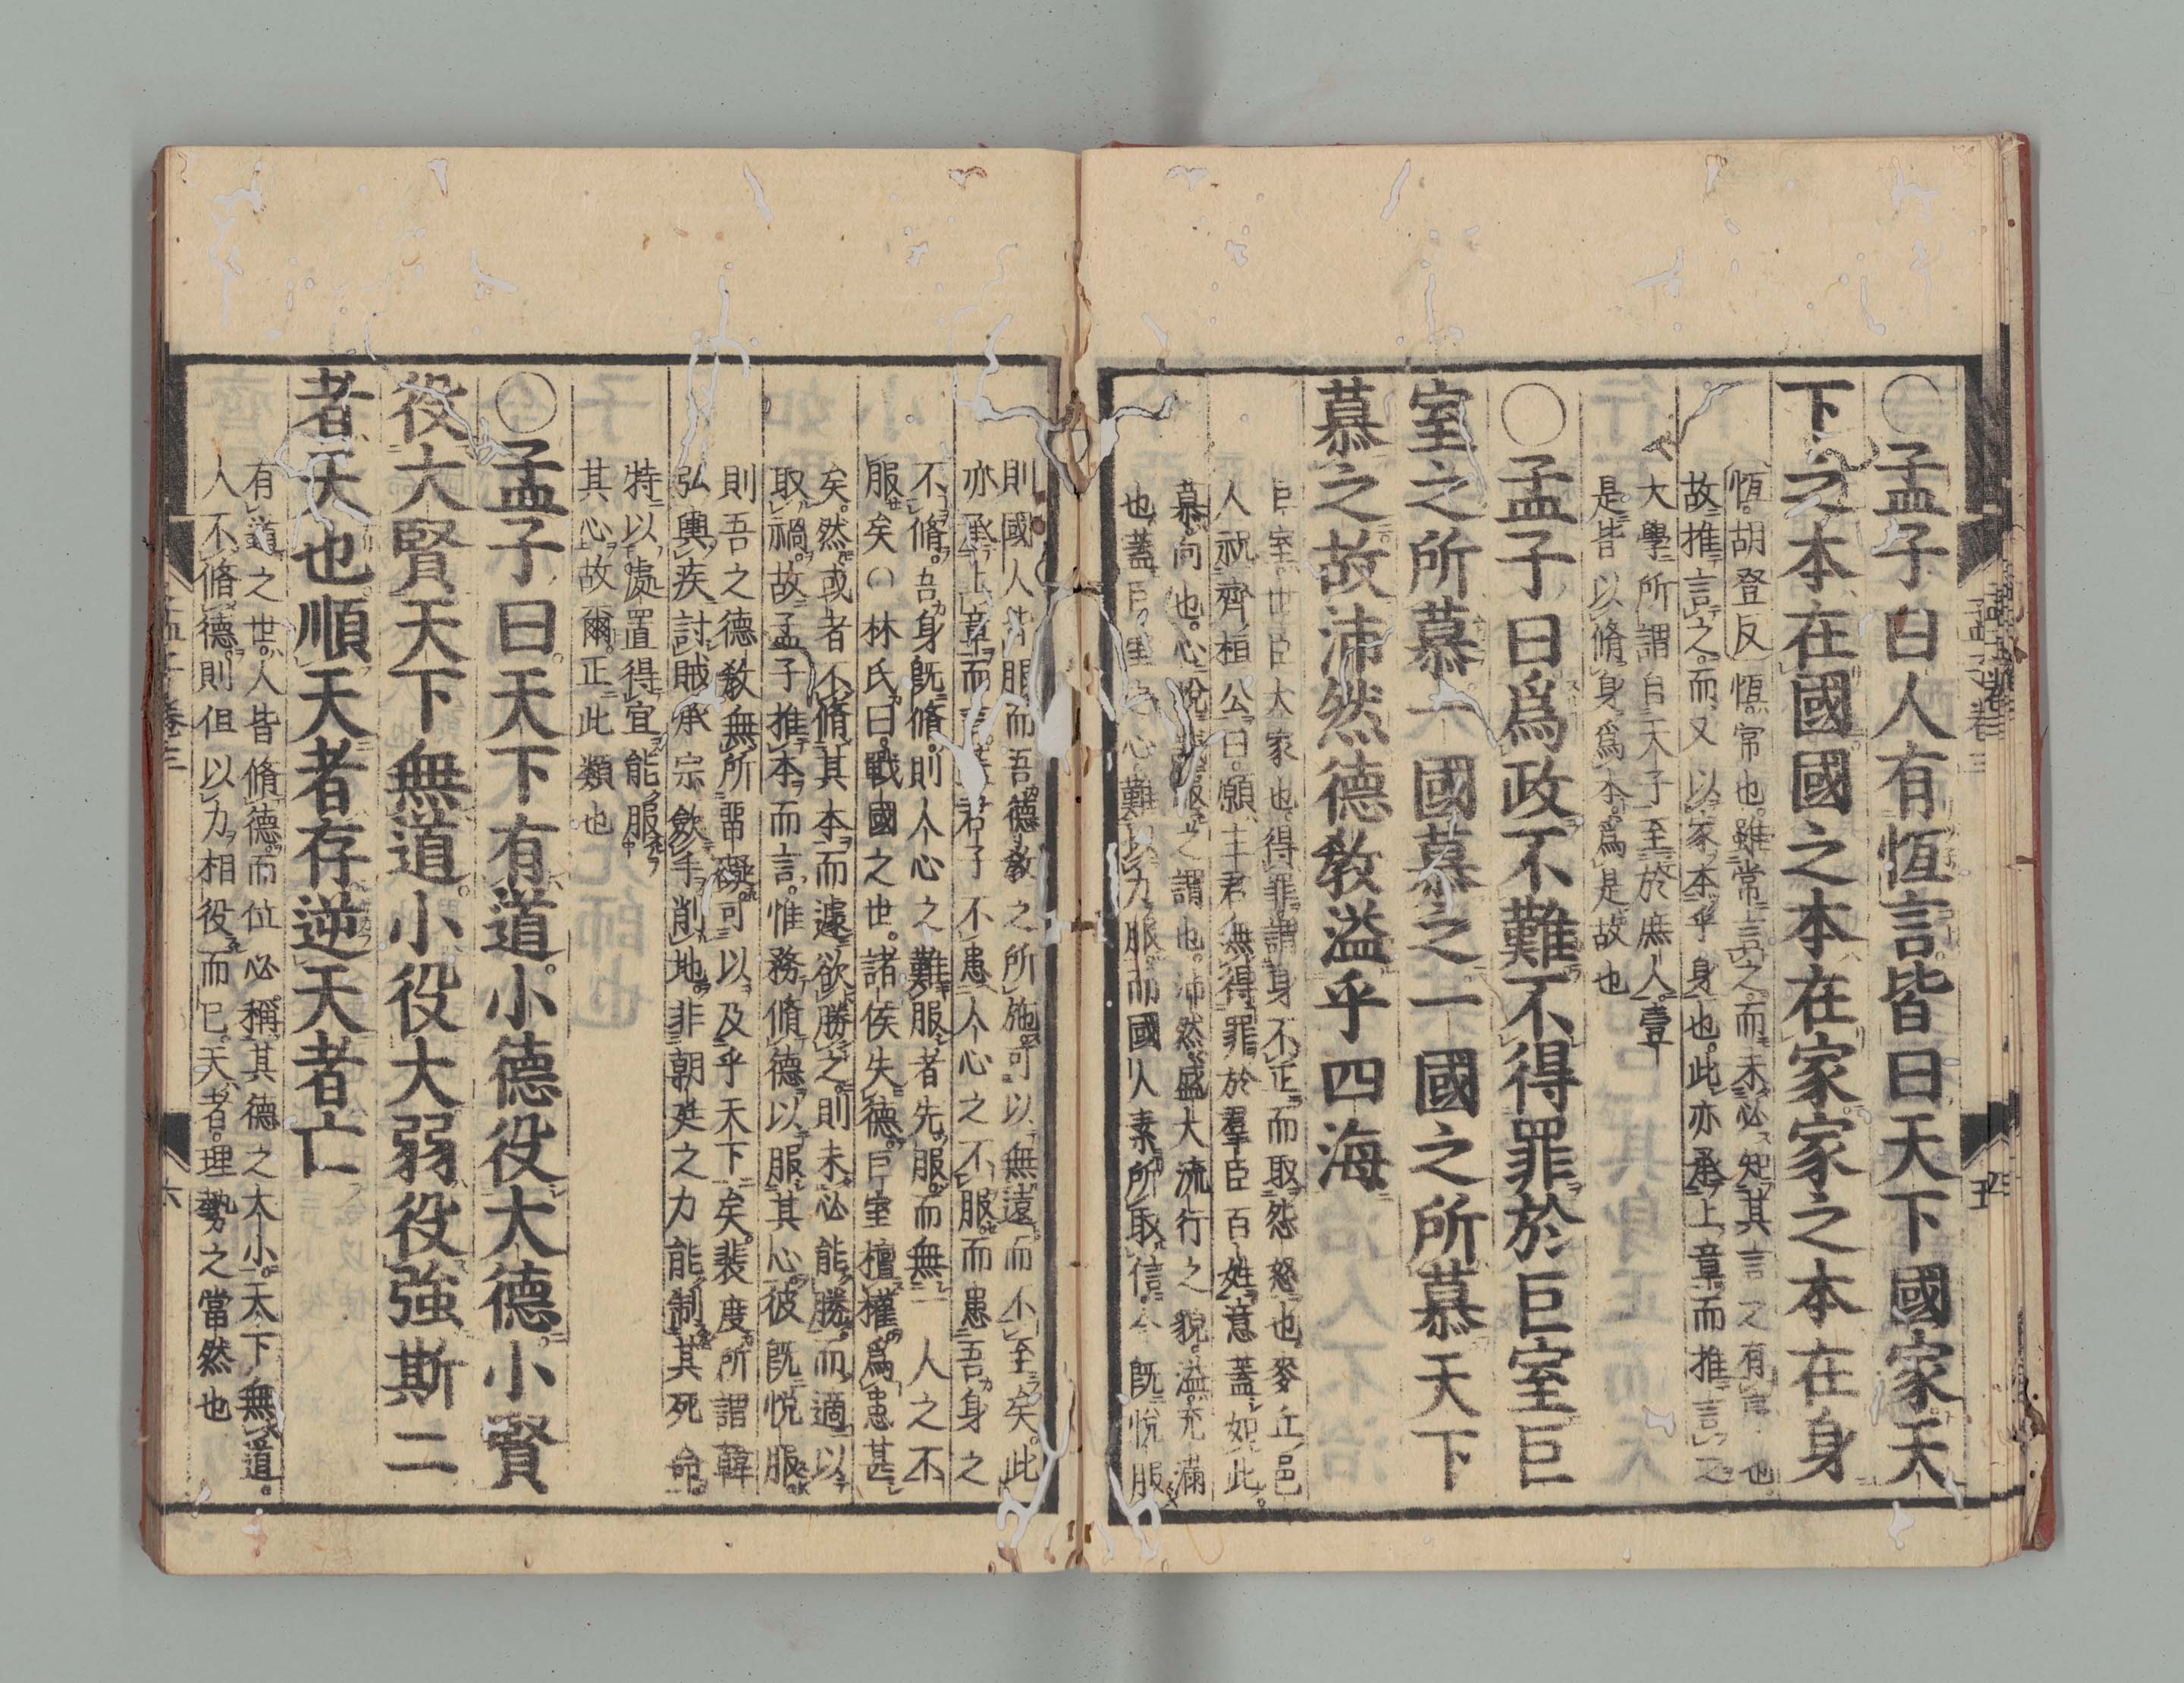 ○孟子曰人有恆言皆曰天下國家天
下之本在國國之本在家家之本在身
恆胡登反恆常也雖常言之而未必知其言之有也
故推言之而又以家本乎身也此亦承上章而推言之
大學所謂自天子至於庶人壹
是皆以脩身爲本爲是故也
○孟子曰爲政不難不得罪於巨室巨
室之所慕一國慕之一國之所慕天下
慕之故沛然德敎溢乎四海
巨室世臣大家也得罪謂身不正而取怨怒也麥丘邑
人祝齊桓公曰願主君無得罪於羣臣百姓意蓋如此
慕向也心悅服之謂也沛然盛大流行之貌溢充滿
也蓋巨室之心難以力服而國人素所取信今旣悅服
則國人皆服而吾德敎之所施可以無遠而不至矣此
亦承上章而言蓋君子不患人心之不服而患吾身之
不脩吾身旣脩則人心之難服者先服而無一人之不
服矣○林氏曰戰國之世諸侯失德巨室擅權爲患甚
矣然或者不脩其本而遽欲勝之則未必能勝而適以
取禍故孟子推本而言惟務脩德以服其心彼旣悅服
則吾之德敎無所畱礙可以及乎天下矣裴度所謂韓
弘輿疾討賊承宗斂手削地非朝廷之力能制其死命
特以處置得宜能服
其心故爾正此類也
○孟子曰天下有道小德役大德小賢
役大賢天下無道小役大弱役強斯二
者天也順天者存逆天者亡
有道之世人皆脩德而位必稱其德之大小天下無道
人不脩德則但以力相役而已天者理勢之當然也
孟子卷三
六